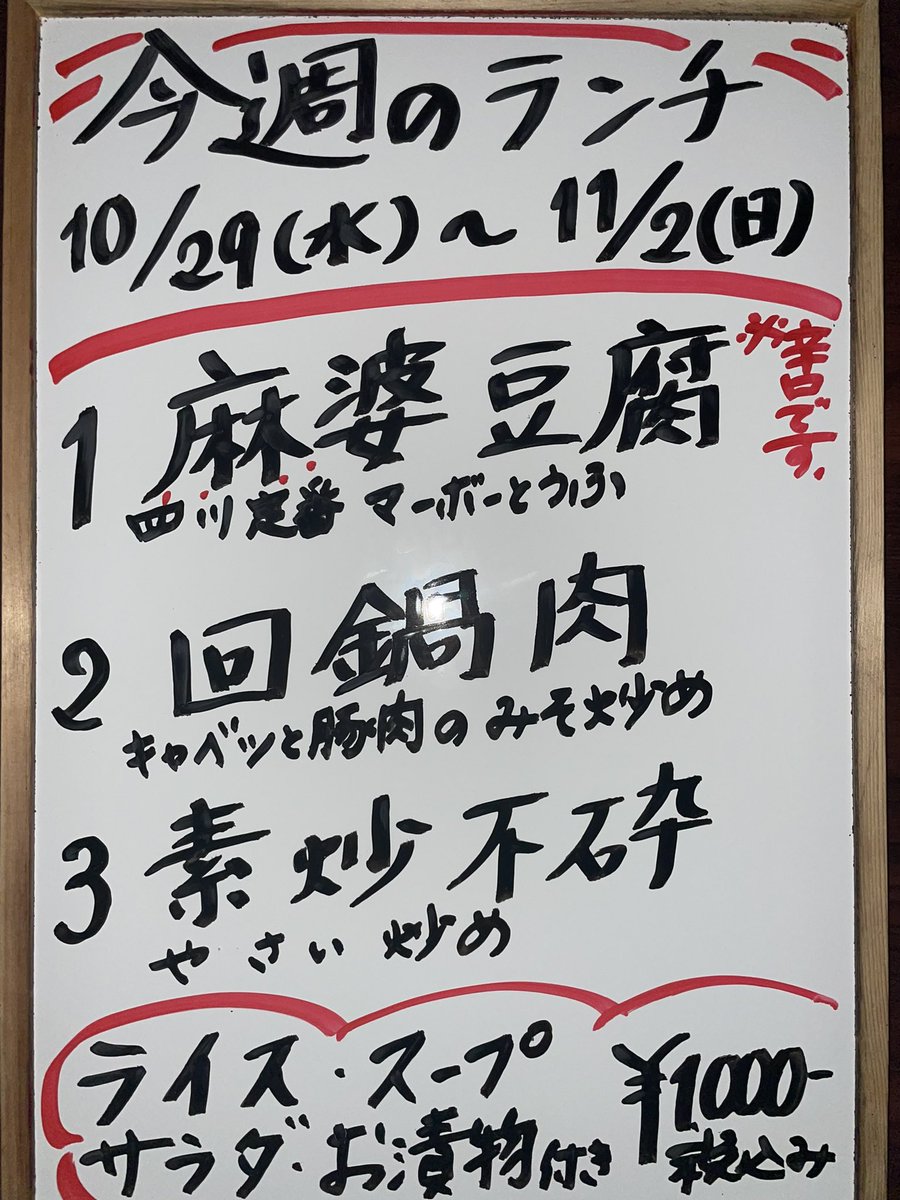 今週のランチ
10/29(水)〜11/2(日)
1 麻婆豆腐
※辛口です.
四川定番 マーボーとうふ
2 回鍋肉
キャベツと豚肉のみそ炒め
3 素炒不砕
やさい炒め
ライス・スープ
サラダ・お漬物付き
¥1000-
税込み